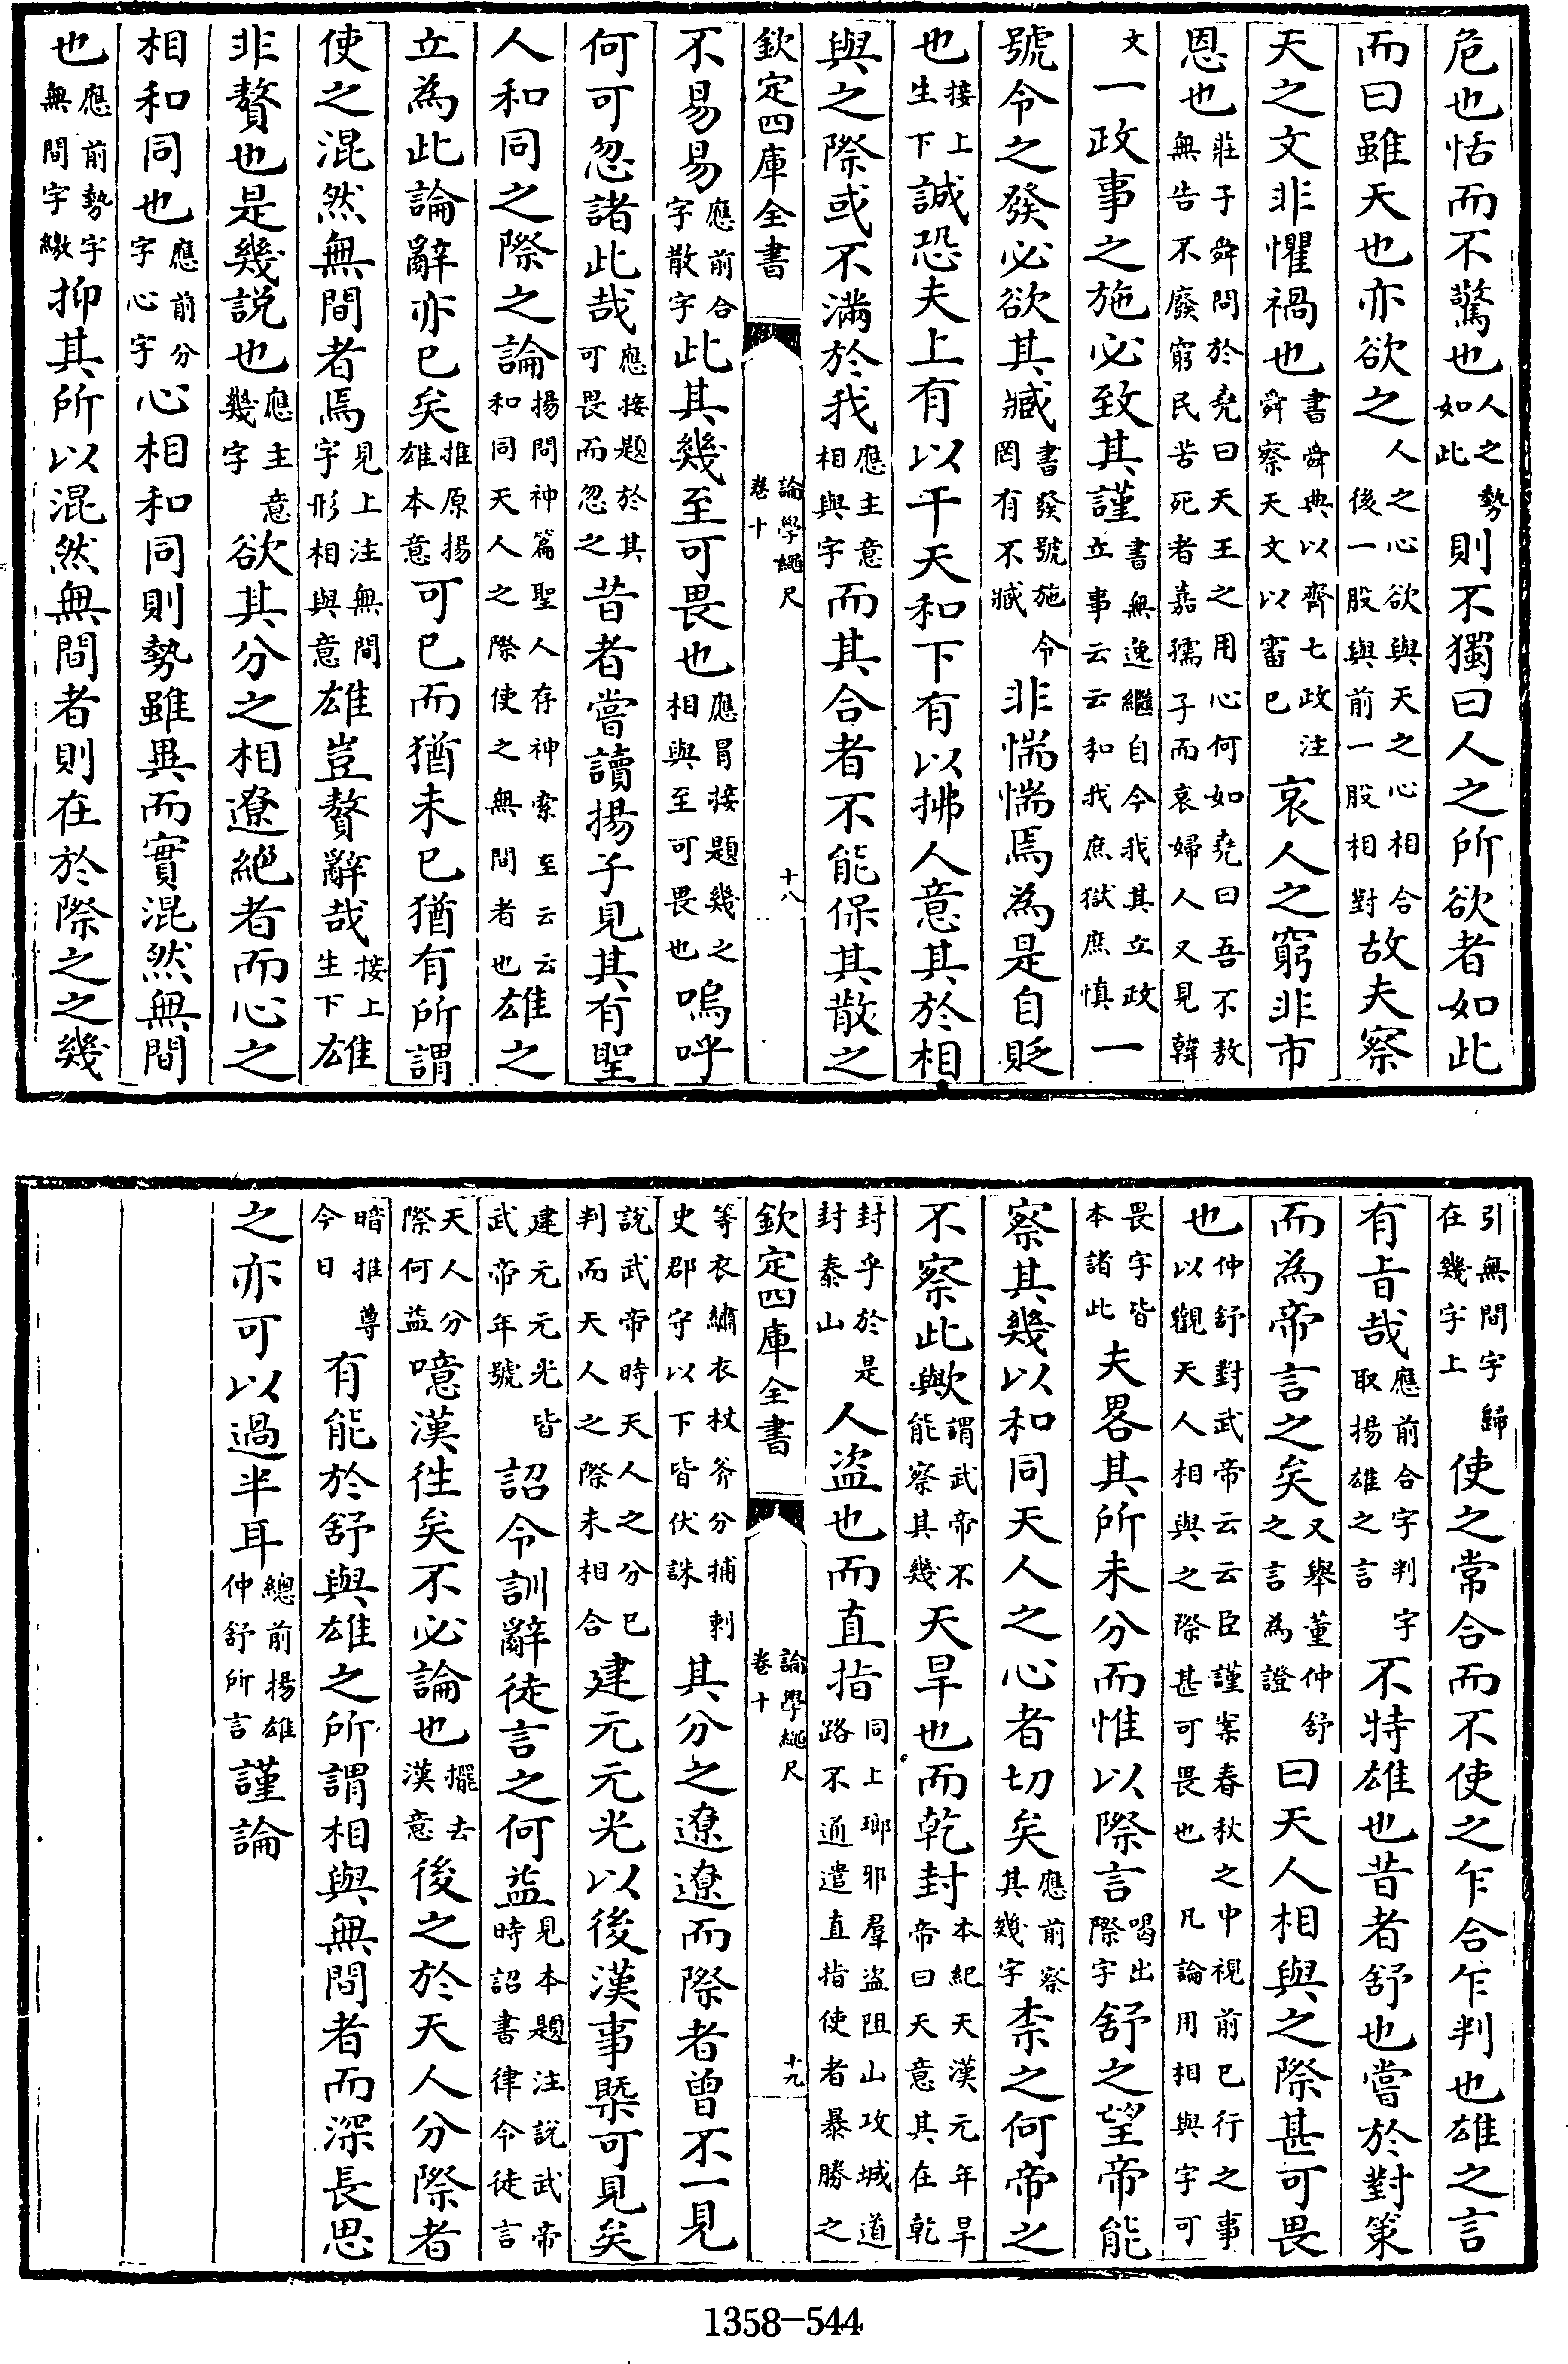 危也恬而不驚也人之勢如此則不獨曰人之所欲者如此
而曰雖天也亦欲之人之心欲與天之心相合後一股與前一股相對故夫察
天之文非懼禍也書舜典以齊七政注舜察天文以審已哀人之窮非市
恩也莊子舜問於堯曰天王之用心何如堯曰吾不敖無告不廢窮民苦死者嘉孺子而哀婦人又見韓
文一政事之施必致其謹書無逸繼自今我其立政立事云云和我庶獄庶慎一
號令之發必欲其臧書發號施令罔有不臧非惴惴焉為是自貶
也接上生下誠恐夫上有以干天和下有以拂人意其於相
與之際或不滿於我應主意相與字而其合者不能保其散之
欽定四庫全書 論學繩尺 卷十 十八
不易易應前合字散字此其幾至可畏也應冒接題幾之相與至可畏也嗚呼
何可忽諸此哉應接題於其可畏而忽之昔者嘗讀揚子見其有聖
人和同之際之論揚問神篇聖人存神索至云云和同天人之際使之無間者也雄之
立為此論辭亦已矣推原揚雄本意可已而猶未已猶有所謂
使之混然無間者焉見上注無間字形相與意雄豈贅辭哉接上生下雄
非贅也是幾說也應主意幾字欲其分之相遼絕者而心之
相和同也應前分字心字心相和同則勢雖異而實混然無間
也應前勢字無間字繳抑其所以混然無間者則在於際之之幾
引無間字歸在幾字上使之常合而不使之乍合乍判也雄之言
有旨哉應前合字判字取揚雄之言不特雄也昔者舒也嘗於對策
而為帝言之矣又舉董仲舒之言為證曰天人相與之際甚可畏
也仲舒對武帝云云臣謹案春秋之中視前已行之事以觀天人相與之際甚可畏也凡論用相與字可
畏字皆本諸此夫畧其所未分而惟以際言喝出際字舒之望帝能
察其幾以和同天人之心者切矣應前察其幾字柰之何帝之
不察此歟謂武帝不能察其幾天旱也而乾封本紀天漢元年旱帝曰天意其在乾
封乎於是封泰山人盜也而直指同上瑯邪羣盜阻山攻城道路不通遣直指使者暴勝之
欽定四庫全書 論學繩尺 卷十 十九
等衣繡衣杖斧分捕刺史郡守以下皆伏誅其分之遼遼而際者曾不一見
說武帝時天人之分已判而天人之際未相合建元元光以後漢事槩可見矣
建元元光皆武帝年號詔令訓辭徒言之何益見本題注說武帝時詔書律令徒言
天人分際何益噫漢徃矣不必論也擺去漢意後之於天人分際者
暗推尊今日有能於舒與雄之所謂相與無間者而深長思
之亦可以過半耳總前揚雄仲舒所言謹論
1358-544